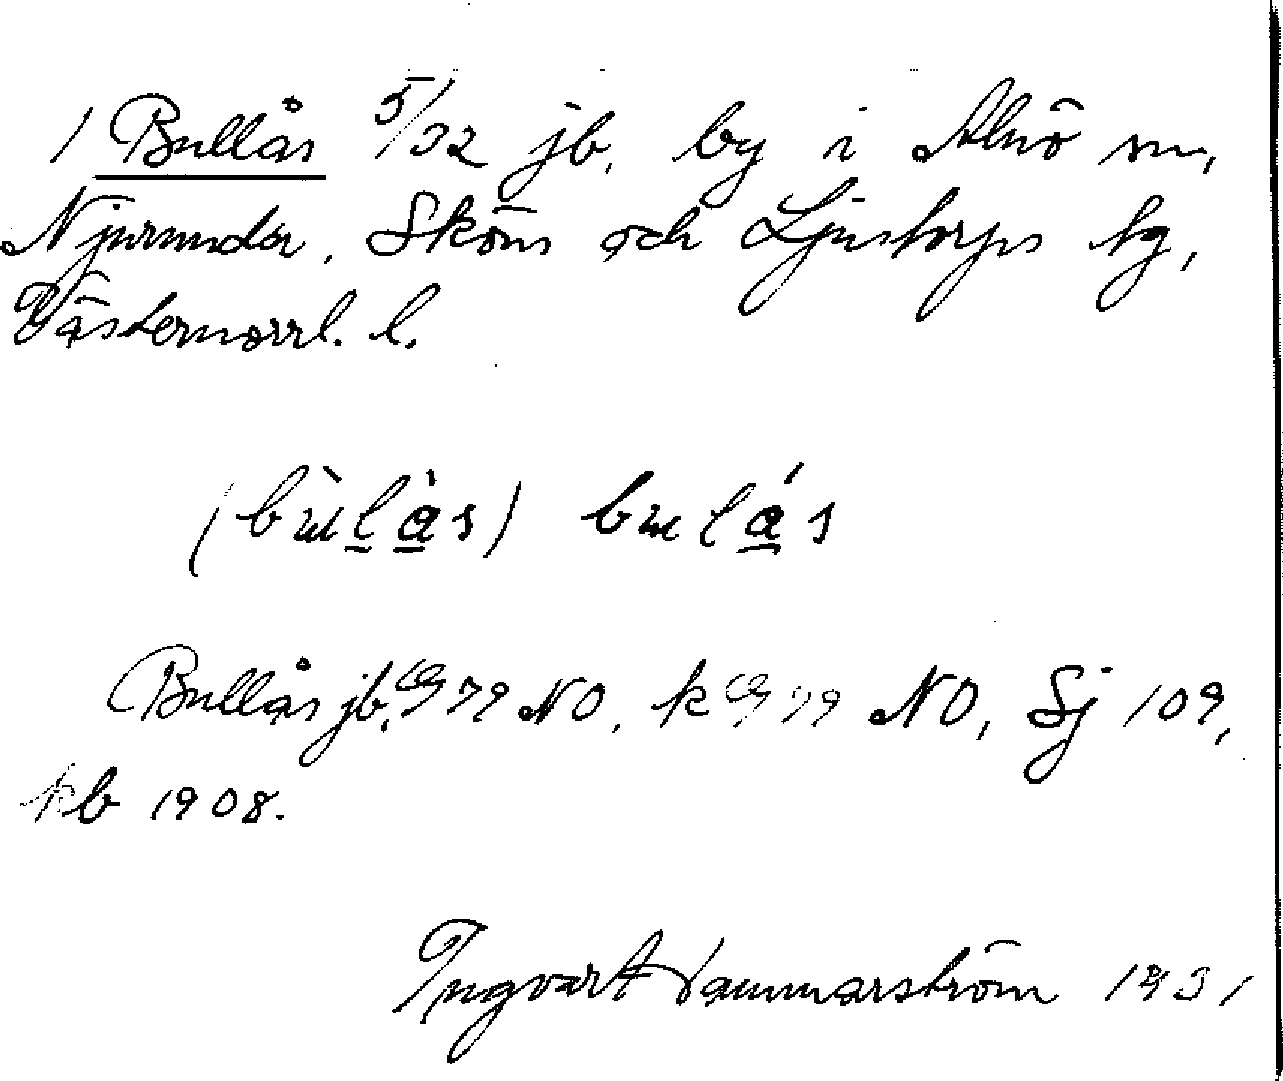 1 Bullås 5/32 jb. by i Alnö sn,
Njurunda, Sköns och Ljustorps tg,
Västernorrl. l.
(bùlås) bulås
Bullås jb, G 79 NO, k G 79 NO, Sj 109,
kb 1908.
Ingvart Hammarström 1931